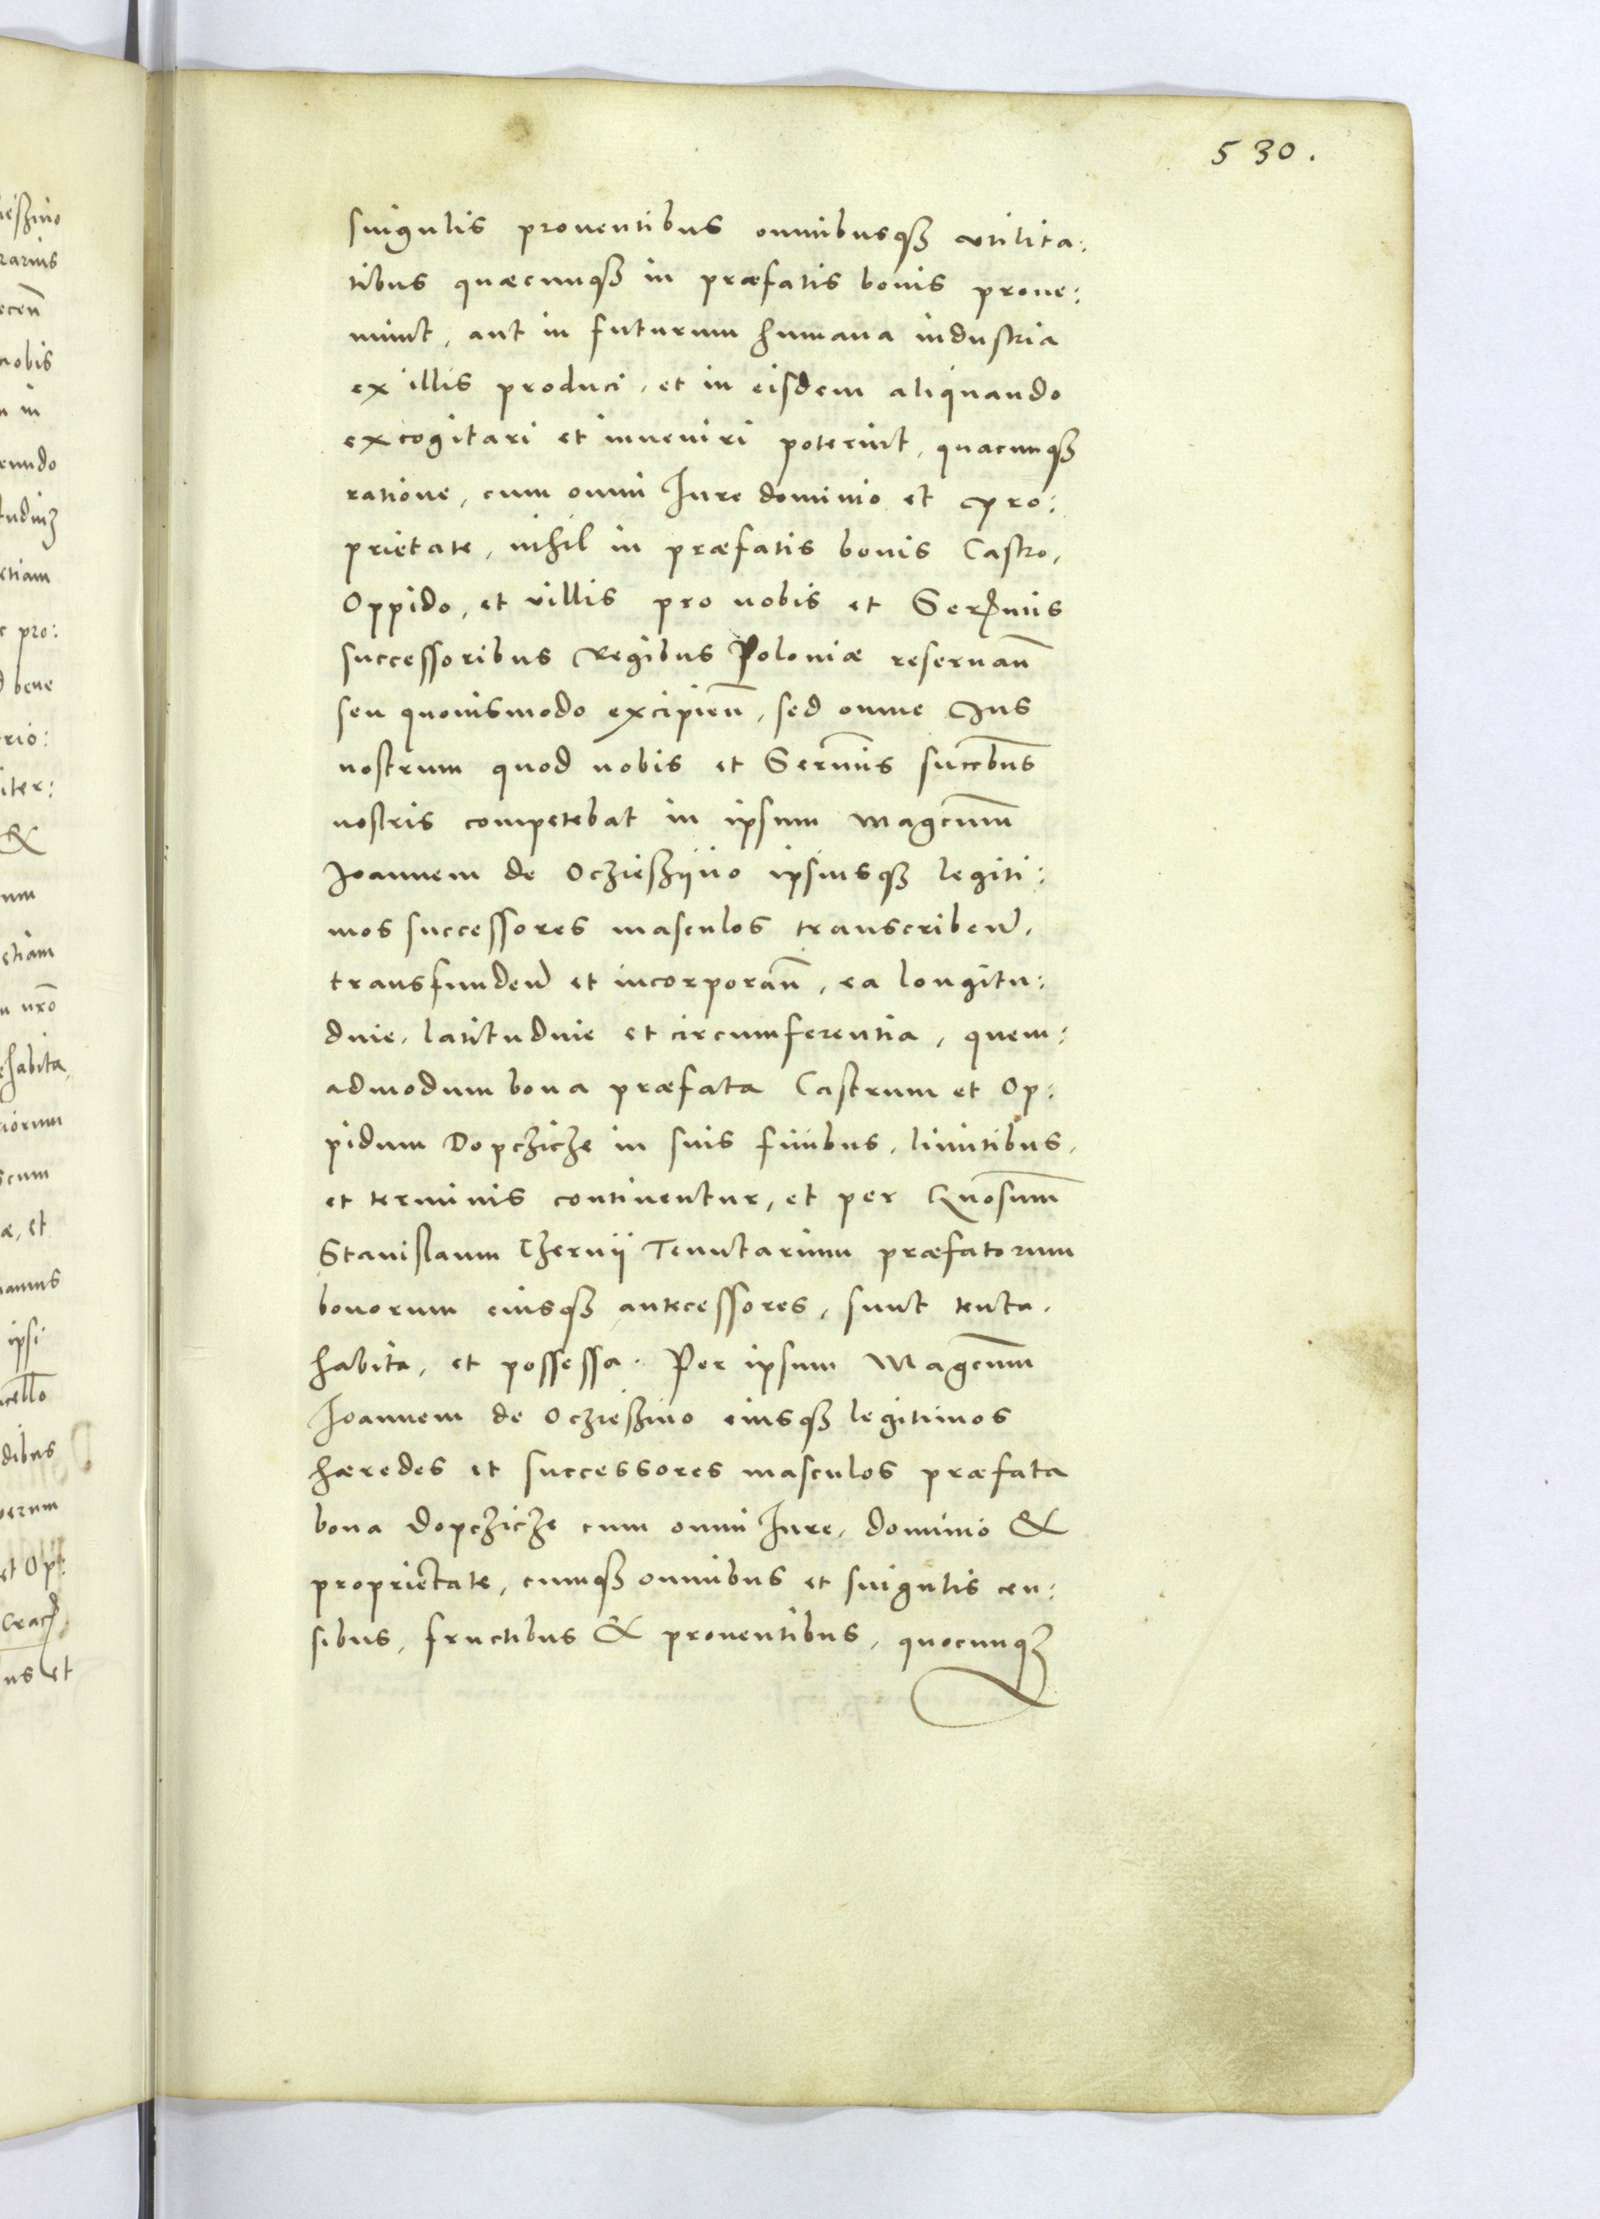 530.
singulis proventibus omnibusqꝫ vtilita:
tibus quæcunqꝫ in præfatis bonis prove:
niunt, aut in futurum humana industria
ex illis produci, et in eisdem aliquando
excogitari et inveniri poterint, quacunqꝫ
ratione, cum omni Iure dominio et pro:
prietate, nihil in præfatis bonis Castro,
Oppido, et villis pro nobis et Serenis
successoribus Regibus Poloniæ reservan̄
seu quovismodo excipien̄, sed omne Ius
nostrum quod nobis et Serm̄is succbus
nostris competebat in ipsum Magcum̄
Joannem de Oczieszijno ipsiusqꝫ legiti:
mos successores masculos transcriben̄,
transfunden̄ et incorporan̄, ea longitu:
dine, latitudine et circumferentia, quem:
admodum bona præfata Castrum et Op:
pidum Dopczicze in suis finibus, limitibus,
et terminis continentur, et per Gnosum̄
Stanislaum Czernij Tenutarium præfatorum
bonorum eiusqꝫ antecessores, sunt tenta,
habita, et possessa. Per ipsum Magcum̄
Joannem de Oczieszino eiusqꝫ legitimos
hæredes et successores masculos præfata
bona Dopczicze cum omni Iure, dominio &
proprietate, cumqꝫ omnibus et singulis cen:
sibus, fructibus & proventibus, quocunqꝫ